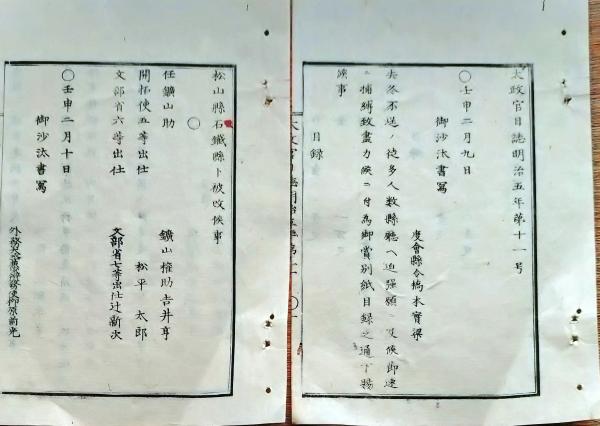 太政官日誌明治五年第十一号
○壬申二月九日
御沙汰書写
度會縣令橋本實梁
去冬不逞ノ徒多人数縣廳ヘ迫強願ニ及候節速
ニ捕縛致盡力候ニ付為御賞別紙目録之通下賜
候事
目録
松山縣石鐵縣ト被改候事
○
任鑛山助
鑛山権助吉井亨
開拓使五等出仕
松平太郎
文部省六等出仕
文部省七等出仕辻新次
○壬申二月十日
御沙汰書寫
柳原前光